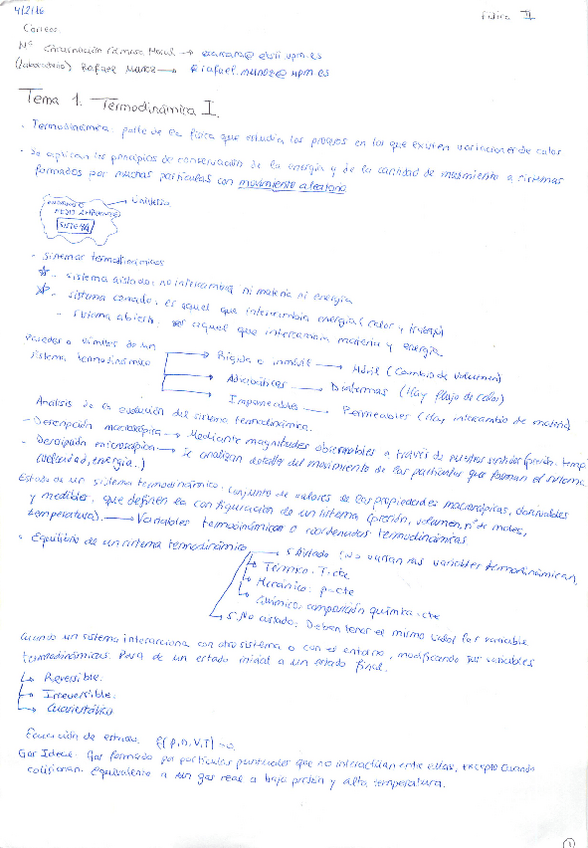 4/2/16
Física II
Correos.
Nº Concurnación Carmona Moral →
(Laboratorio) Rafael Muñoz → rafael.munoz@upm.es
Tema 1. Termodinámica I.
· Termodinámica: parte de la física que estudia los procesos en los que existen variaciones de calor
· Se aplican los principios de conservación de la energía y de la cantidad de movimiento a sistemas
formados por muchas partículas con movimiento aleatorio
→ Universo
SISTEMA
· Sistemas termodinámicos
- sistema aislado: no intercambia ni materia ni energía
- sistema cerrado: es aquel que intercambia energía (calor y trabajo)
- sistema abierto: es aquel que intercambia materia y energía
Paredes o límites de un
sistema termodinámico
→ Rígida o inmóvil → Móvil (Cambio de volumen)
→ Adiabáticas → Diatermas (Hay flujo de calor)
→ Impermeables → Permeables (Hay intercambio de materia)
Análisis de la evolución del sistema termodinámico.
- Descripción macroscópica → Mediante magnitudes observables a través de nuestros sentidos (presión, temp.
- Descripción microscópica → Se analizan detalles del movimiento de las partículas que forman el sistema
(velocidad, energía..)
Estado de un sistema termodinámico: Conjunto de valores de las propiedades macroscópicas, observables
y medibles, que definen la configuración de un sistema (presión, volumen, nº de moles,
temperatura). → Variables termodinámicas o coordenadas termodinámicas
· Equilibrio de un sistema termodinámico
→ S. Aislado (No varían sus variables termodinámicas,
→ Térmico: T=cte
→ Mecánico: p=cte
→ Químico: composición química=cte
→ S. No aislado: Deben tener el mismo valor las variable
Cuando un sistema interacciona con otro sistema o con el entorno, modificando sus variables
termodinámicas. Pasa de un estado inicial a un estado final.
→ Reversible.
→ Irreversible.
→ Cuasiestático
Ecuación de estado. f(p,n,V,T)=0.
Gas Ideal. Gas formado por partículas puntuales que no interactúan entre ellas, excepto cuando
colisionan. Equivalente a un gas real a baja presión y alta temperatura.
1